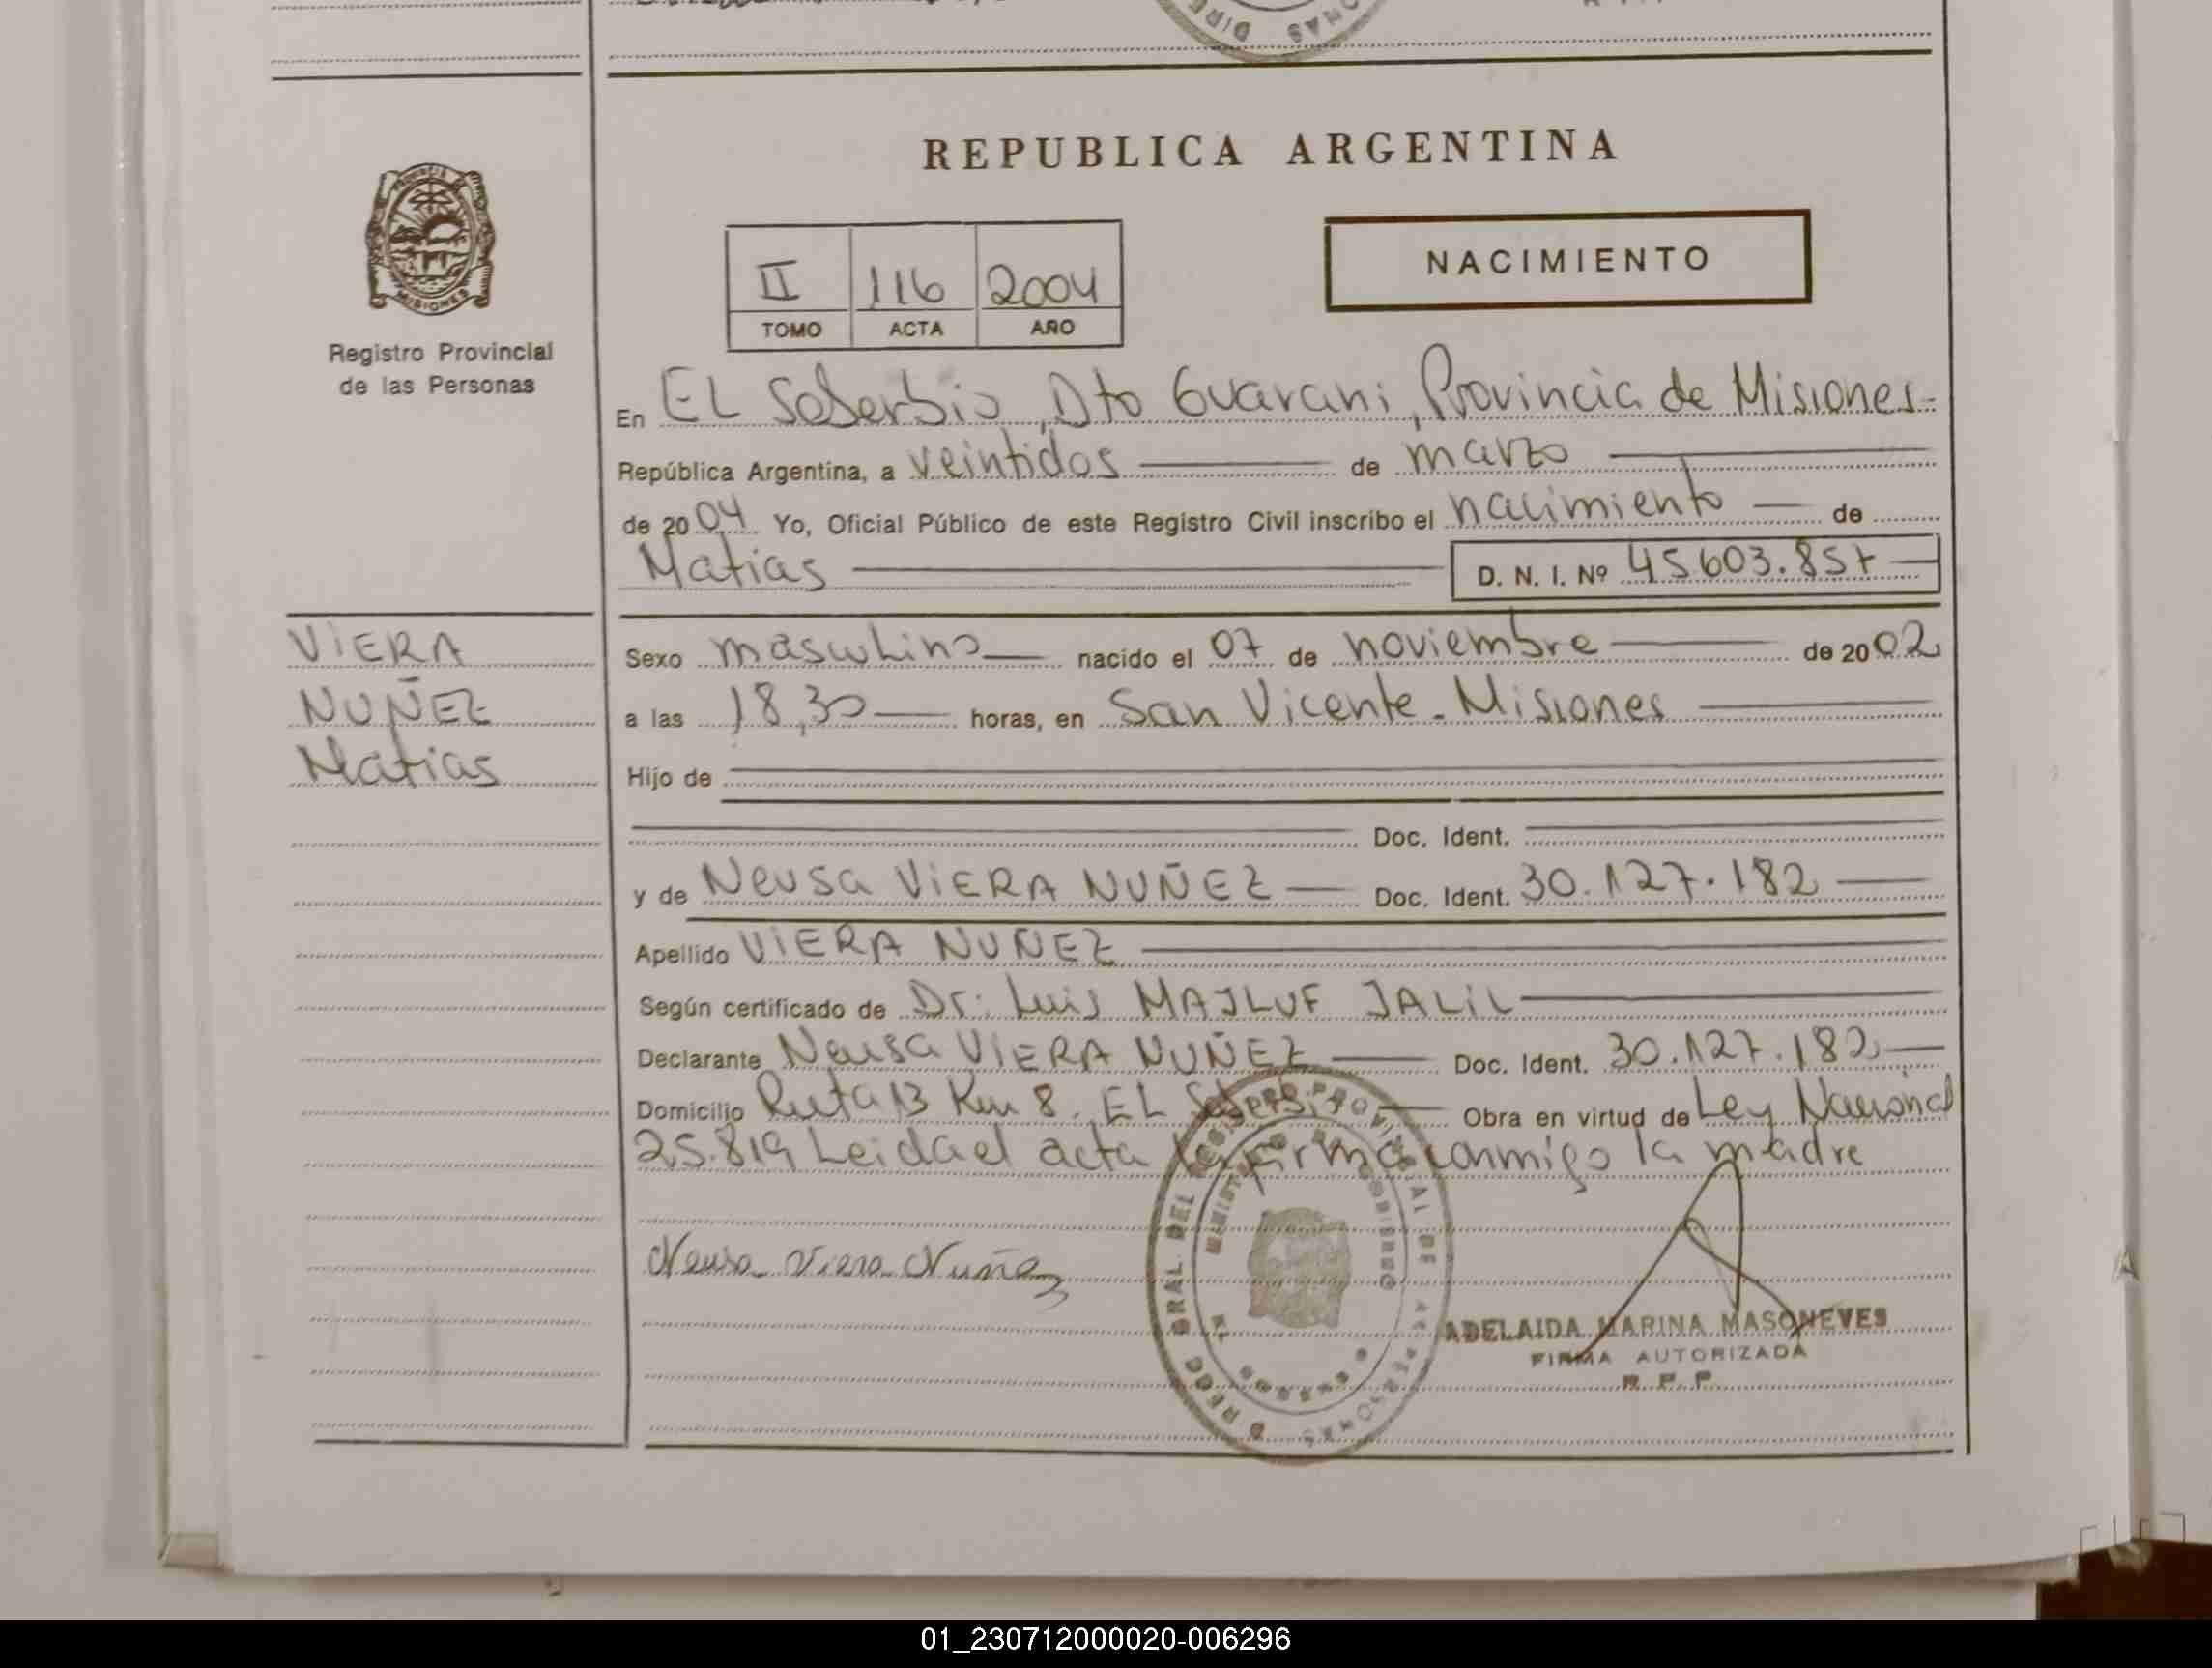 REPUBLICA ARGENTINA
PROVINCIA DE
MISIONES
Registro Provincial
de las Personas
II 116 2004
TOMO ACTA AÑO
NACIMIENTO
En EL Soberbio, Dto Guarani, Provincia de Misiones.
República Argentina, a veintidos de marzo
de 2004 Yo, Oficial Público de este Registro Civil inscribo el nacimiento de
Matias D. N. I. Nº 45.603.857
VIERA
NUÑEZ
Matias
Sexo masculino nacido el 07 de noviembre de 2002
a las 18,30 horas, en San Vicente - Misiones
Hijo de
Doc. Ident.
y de Neusa VIERA NUÑEZ Doc. Ident. 30.127.182
Apellido VIERA NUÑEZ
Según certificado de Dr. Luis MAJLUF JALIL
Declarante Neusa VIERA NUÑEZ Doc. Ident. 30.127.182
Domicilio Ruta 13 Km 8. EL Soberbio Obra en virtud de Ley Nacional
25.819 Leida el acta la firma conmigo la madre
Neusa Viera Nuñez
ADELAIDA MARINA MASONEVES
FIRMA AUTORIZADA
R. P. P.
01_230712000020-006296